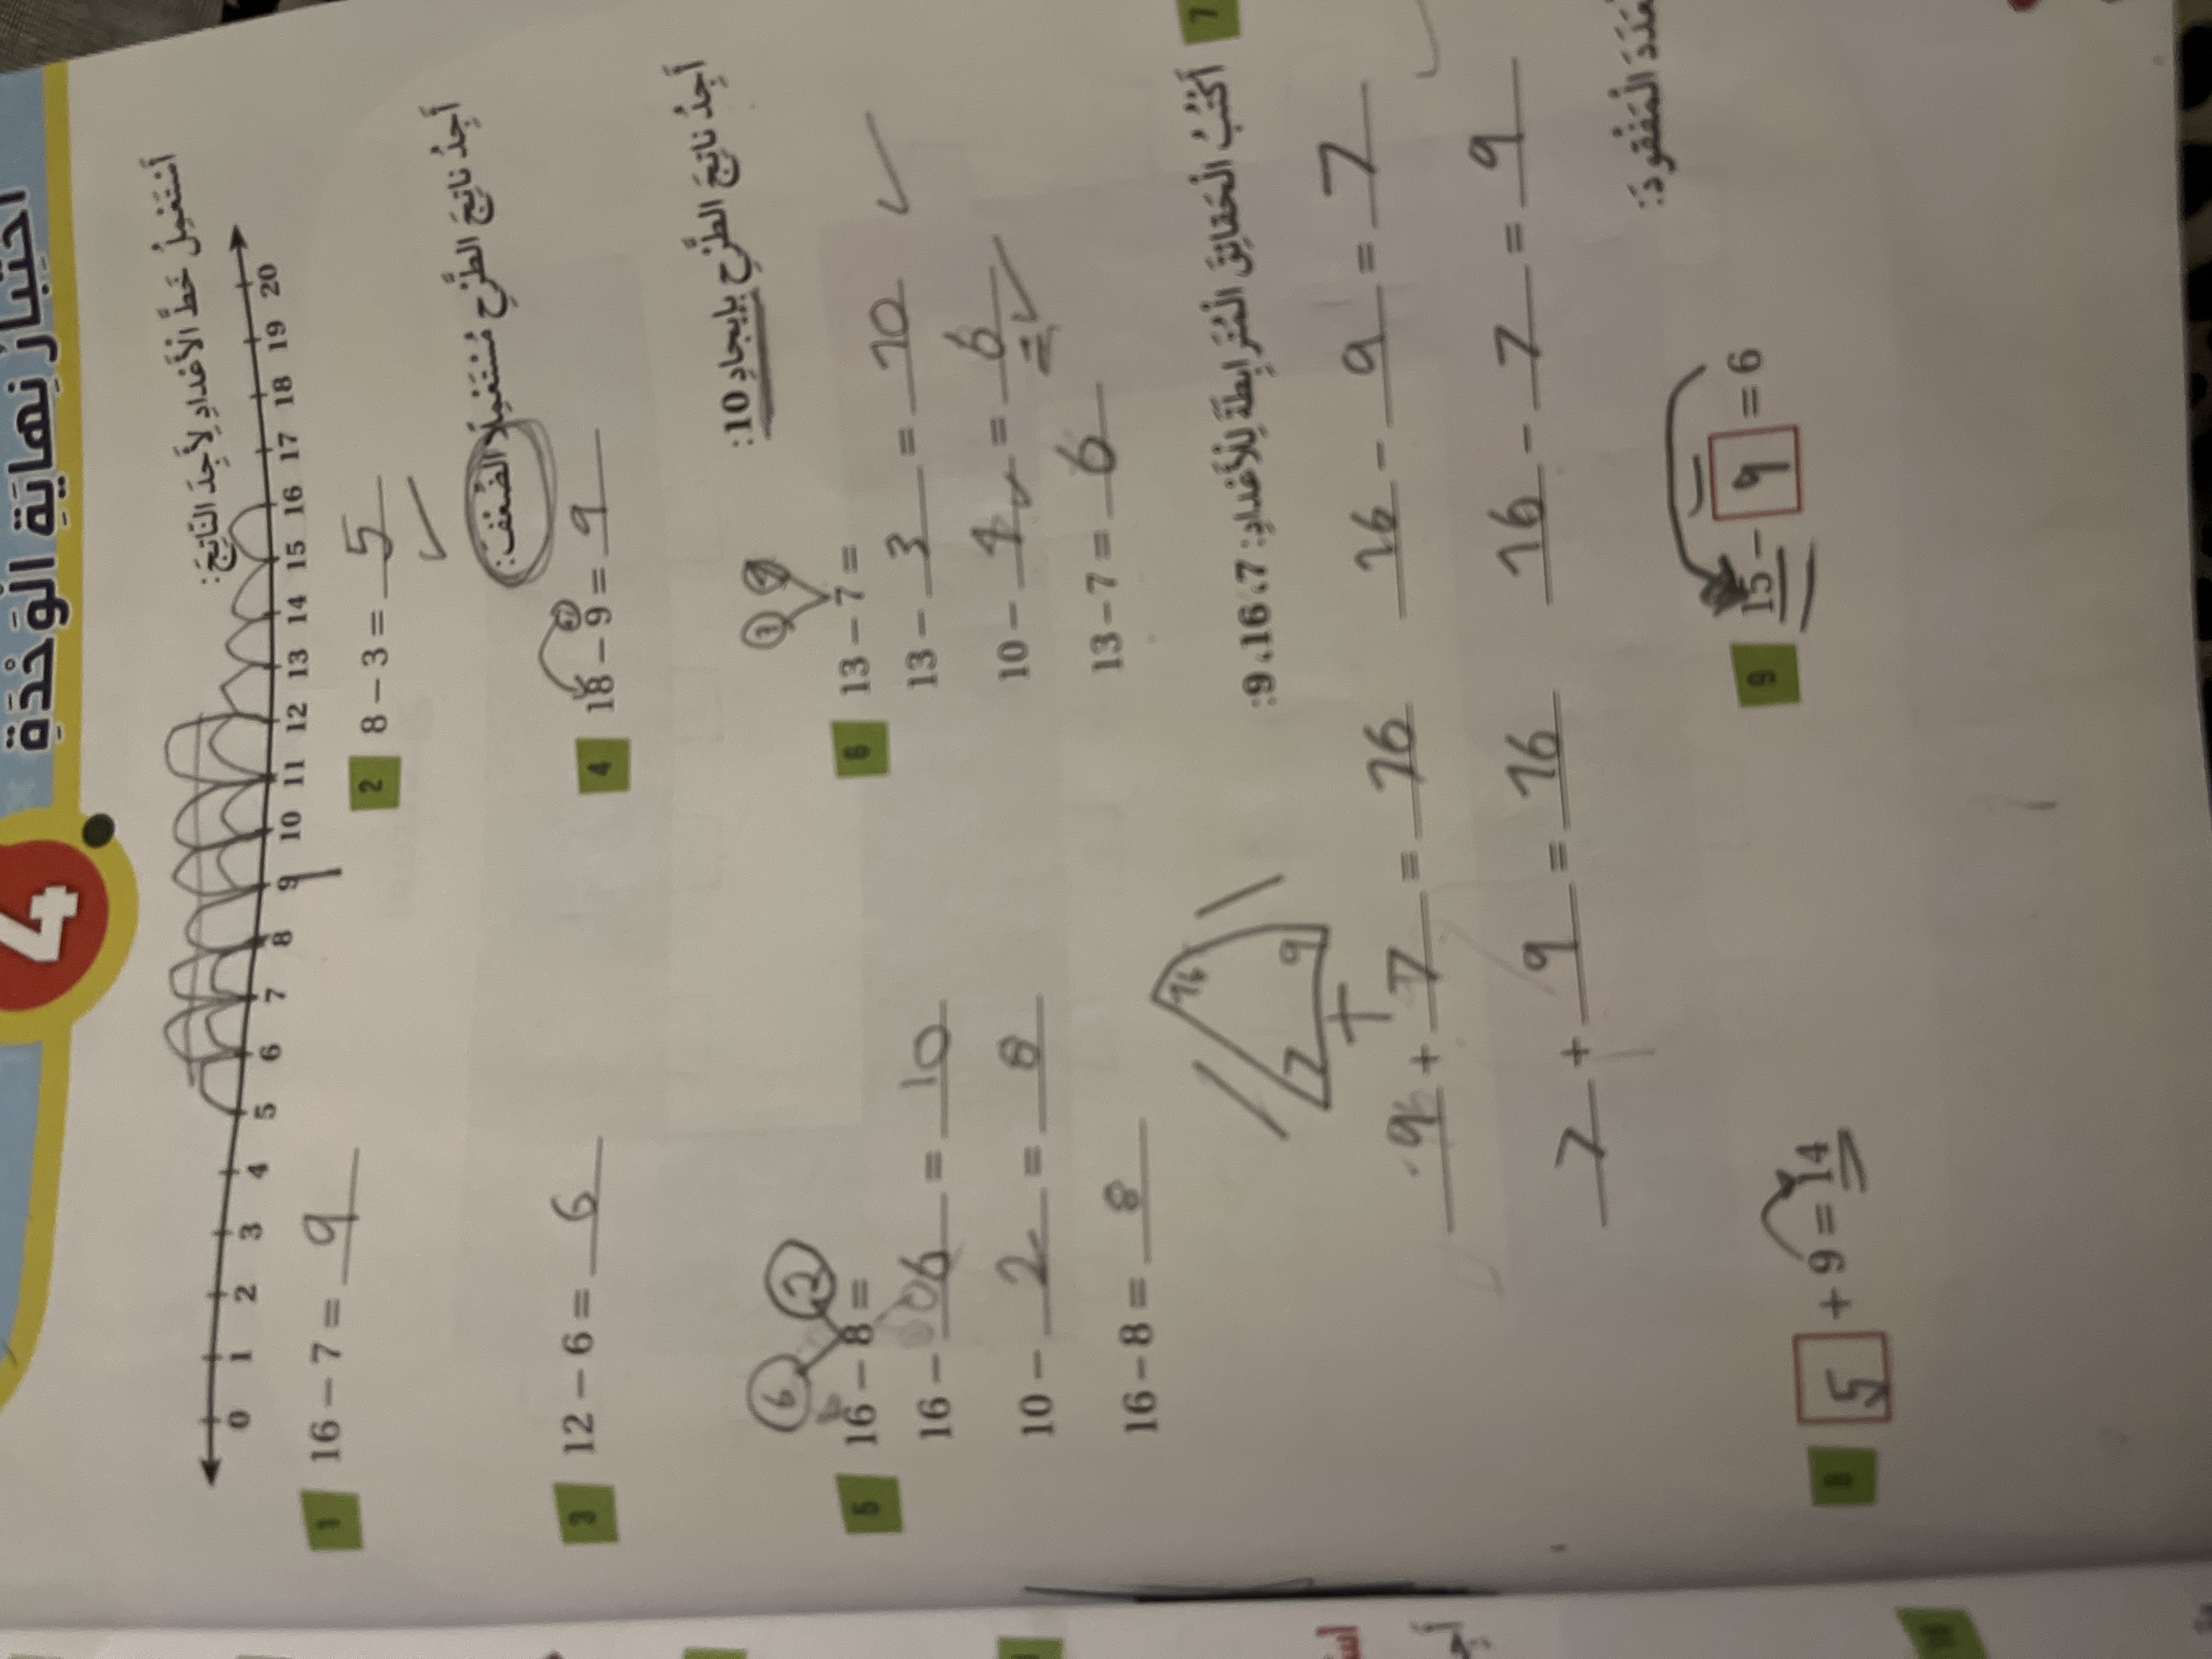 اختبار نهاية الوحدة
4
أَسْتَعْمِلُ خَطَّ الْأَعْدَادِ لِأَجِدَ النَّاتِجَ:
0 1 2 3 4 5 6 7 8 9 10 11 12 13 14 15 16 17 18 19 20
1 16 – 7 = 9
2 8 – 3 = 5
أَجِدُ نَاتِجَ الطَّرْحِ مُسْتَعْمِلًا الضِّعْفَ:
3 12 – 6 = 6
4 18 – 9 = 9
أَجِدُ نَاتِجَ الطَّرْحِ بِإِيجَادِ 10:
6 2
5 16 – 8 =
16 – 6 = 10
10 – 2 = 8
16 – 8 = 8
3
6 13 – 7 =
13 – 3 = 10
10 – 4 = 6
13 – 7 = 6
7 أَكْتُبُ الْحَقَائِقَ الْمُتَرَابِطَةَ لِلْأَعْدَادِ: 7، 16، 9:
16
7 9
+
9 + 7 = 16
16 – 9 = 7
7 + 9 = 16
16 – 7 = 9
الْمَفْقُودَ:
8 5 + 9 = 14
9 15 – 9 = 6